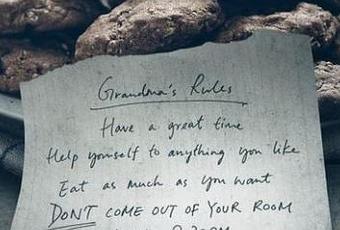 Grandma's Rules
Have a great time
Help yourself to anything you like
Eat as much as you want
DON'T COME OUT OF YOUR ROOM